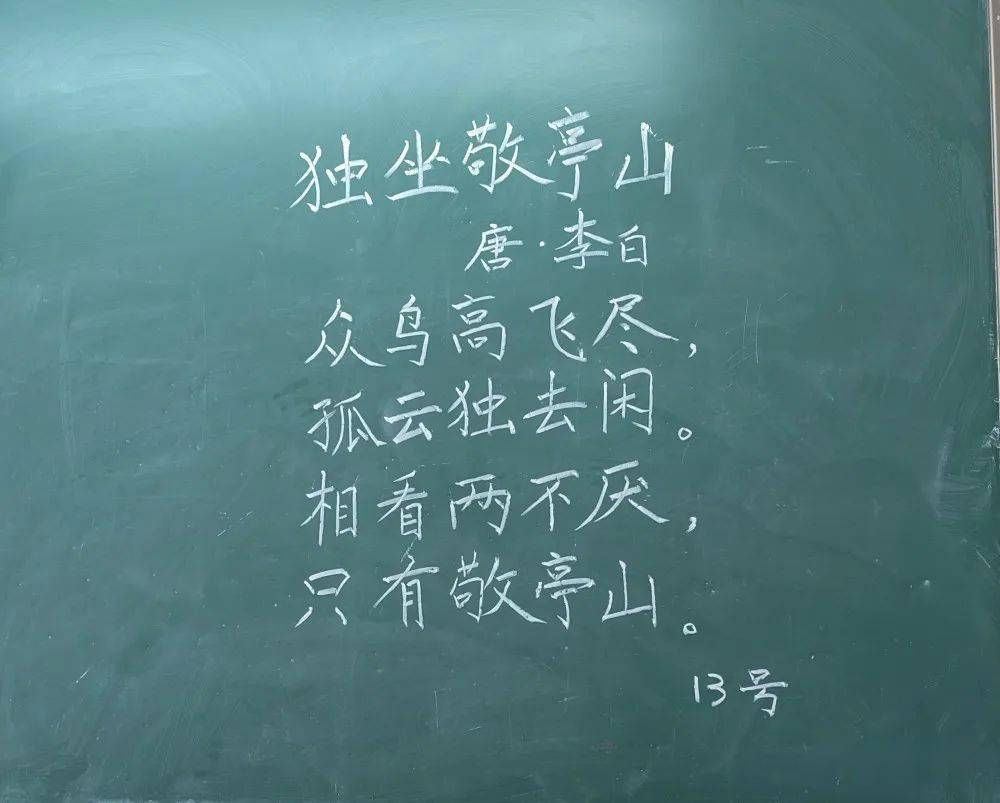 独坐敬亭山
唐·李白
众鸟高飞尽，
孤云独去闲。
相看两不厌，
只有敬亭山。
13号